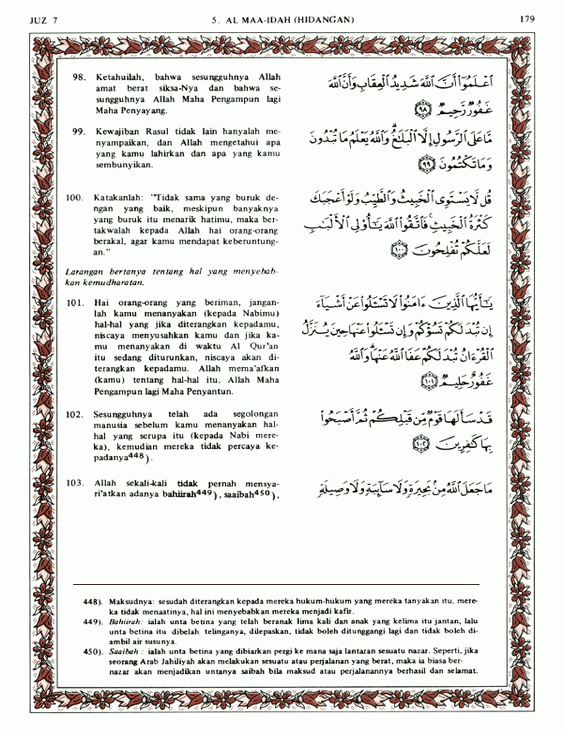 JUZ 7
5. AL MAA-IDAH (HIDANGAN)
179
98. Ketahuilah, bahwa sesungguhnya Allah
amat berat siksa-Nya dan bahwa se-
sungguhnya Allah Maha Pengampun lagi
Maha Penyayang.
اَعْلَمُوٓا۟ أَنَّ ٱللَّهَ شَدِيدُ ٱلْعِقَابِ وَأَنَّ ٱللَّهَ
غَفُورٌ رَّحِيمٌ ٩٨
99. Kewajiban Rasul tidak lain hanyalah me-
nyampaikan, dan Allah mengetahui apa
yang kamu lahirkan dan apa yang kamu
sembunyikan.
مَّا عَلَى ٱلرَّسُولِ إِلَّا ٱلْبَلَـٰغُ ۗ وَٱللَّهُ يَعْلَمُ مَا تُبْدُونَ
وَمَا تَكْتُمُونَ ٩٩
100. Katakanlah: "Tidak sama yang buruk de-
ngan yang baik, meskipun banyaknya
yang buruk itu menarik hatimu, maka ber-
takwalah kepada Allah hai orang-orang
berakal, agar kamu mendapat keberuntung-
an."
قُل لَّا يَسْتَوِى ٱلْخَبِيثُ وَٱلطَّيِّبُ وَلَوْ أَعْجَبَكَ
كَثْرَةُ ٱلْخَبِيثِ ۚ فَٱتَّقُوا۟ ٱللَّهَ يَـٰٓأُو۟لِى ٱلْأَلْبَـٰبِ
لَعَلَّكُمْ تُفْلِحُونَ ١٠٠
Larangan bertanya tentang hal yang menyebab-
kan kemudharatan.
101. Hai orang-orang yang beriman, jangan-
lah kamu menanyakan (kepada Nabimu)
hal-hal yang jika diterangkan kepadamu,
niscaya menyusahkan kamu dan jika ka-
mu menanyakan di waktu Al Qur'an
itu sedang diturunkan, niscaya akan di-
terangkan kepadamu. Allah mema'afkan
(kamu) tentang hal-hal itu. Allah Maha
Pengampun lagi Maha Penyantun.
يَـٰٓأَيُّهَا ٱلَّذِينَ ءَامَنُوا۟ لَا تَسْـَٔلُوا۟ عَنْ أَشْيَآءَ
إِن تُبْدَ لَكُمْ تَسُؤْكُمْ وَإِن تَسْـَٔلُوا۟ عَنْهَا حِينَ يُنَزَّلُ
ٱلْقُرْءَانُ تُبْدَ لَكُمْ عَفَا ٱللَّهُ عَنْهَا ۗ وَٱللَّهُ
غَفُورٌ حَلِيمٌ ١٠١
102. Sesungguhnya telah ada segolongan
manusia sebelum kamu menanyakan hal-
hal yang serupa itu (kepada Nabi mere-
ka), kemudian mereka tidak percaya ke-
padanya448).
قَدْ سَأَلَهَا قَوْمٌ مِّن قَبْلِكُمْ ثُمَّ أَصْبَحُوا۟
بِهَا كَـٰفِرِينَ ١٠٢
103. Allah sekali-kali tidak pernah mensya-
ri'atkan adanya bahiirah449), saaibah450),
مَا جَعَلَ ٱللَّهُ مِنۢ بَحِيرَةٍ وَلَا سَآئِبَةٍ وَلَا وَصِيلَةٍ
448). Maksudnya: sesudah diterangkan kepada mereka hukum-hukum yang mereka tanyakan itu, mere-
ka tidak menaatinya, hal ini menyebabkan mereka menjadi kafir.
449). Bahiirah: ialah unta betina yang telah beranak lima kali dan anak yang kelima itu jantan, lalu
unta betina itu dibelah telinganya, dilepaskan, tidak boleh ditunggangi lagi dan tidak boleh di-
ambil air susunya.
450). Saaibah : ialah unta betina yang dibiarkan pergi ke mana saja lantaran sesuatu nazar. Seperti, jika
seorang Arab Jahiliyah akan melakukan sesuatu atau perjalanan yang berat, maka ia biasa ber-
nazar akan menjadikan untanya saibah bila maksud atau perjalanannya berhasil dan selamat.